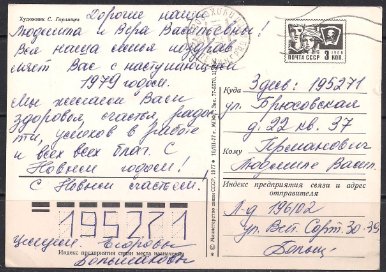 Художник С. Горлищев
Дорогие наши
Людмила и Вера Васильевны!
Вся наша семья поздрав-
ляет Вас с наступающим
1979 годом.
Мы желаем Вам
здоровья, счастья, радос-
ти, успехов в работе
и всех всех благ. С
Новым годом!
С Новым счастьем.
уважающие Егоровы
Большаковы
195271
Индекс предприятия связи места назначения
© Министерство связи СССР, 1977
ПОЧТА СССР
3 коп
Куда Здесь: 195271
ул. Брюсовская
д. 22 кв. 37
Кому
Людмиле Васил.
Индекс предприятия связи и адрес
отправителя
Л-д 196102
ул. Бел. 30-39
Больш.